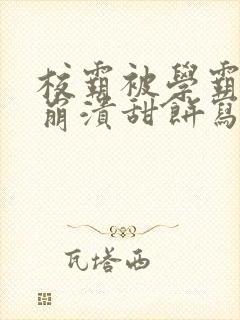 校霸被學霸
崩潰甜餅寫
瓦塔西